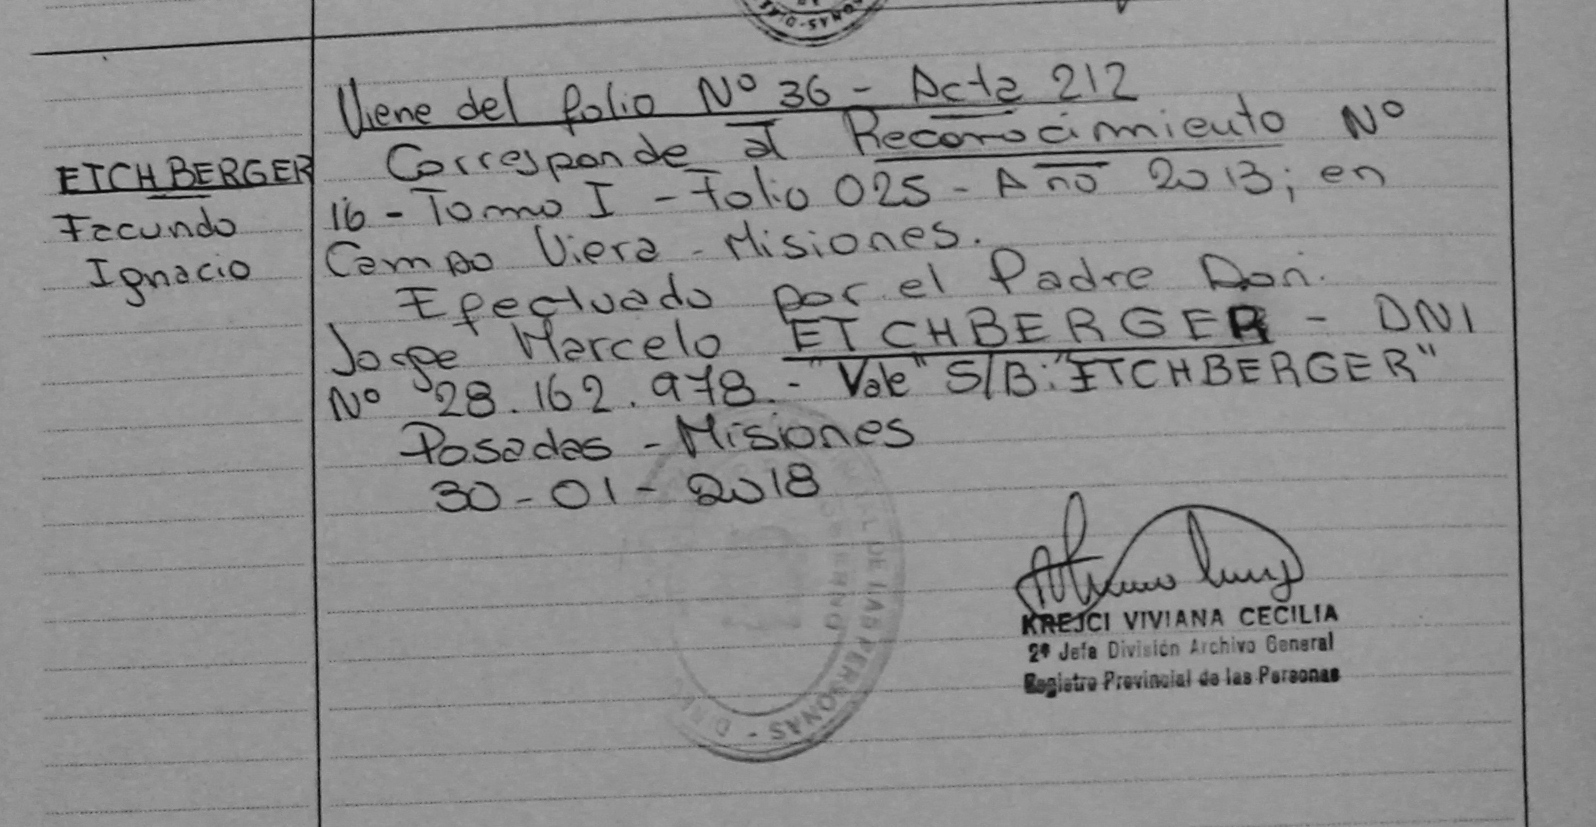 NAS - D
Viene del folio Nº 36 - Acta 212
Corresponde al Reconocimiento Nº
16 - Tomo I - Folio 025 - Año 2013; en
Campo Viera - Misiones.
Efectuado por el Padre Don.
Jorge Marcelo ETCHBERGER - DNI
Nº 28.162.978. - "Vale" S/B: "ETCHBERGER"
Posadas - Misiones
30-01-2018
ETCHBERGER
Facundo
Ignacio
DE LAS PERSONAS - DIR
KREJCI VIVIANA CECILIA
2ª Jefa División Archivo General
Registro Provincial de las Personas